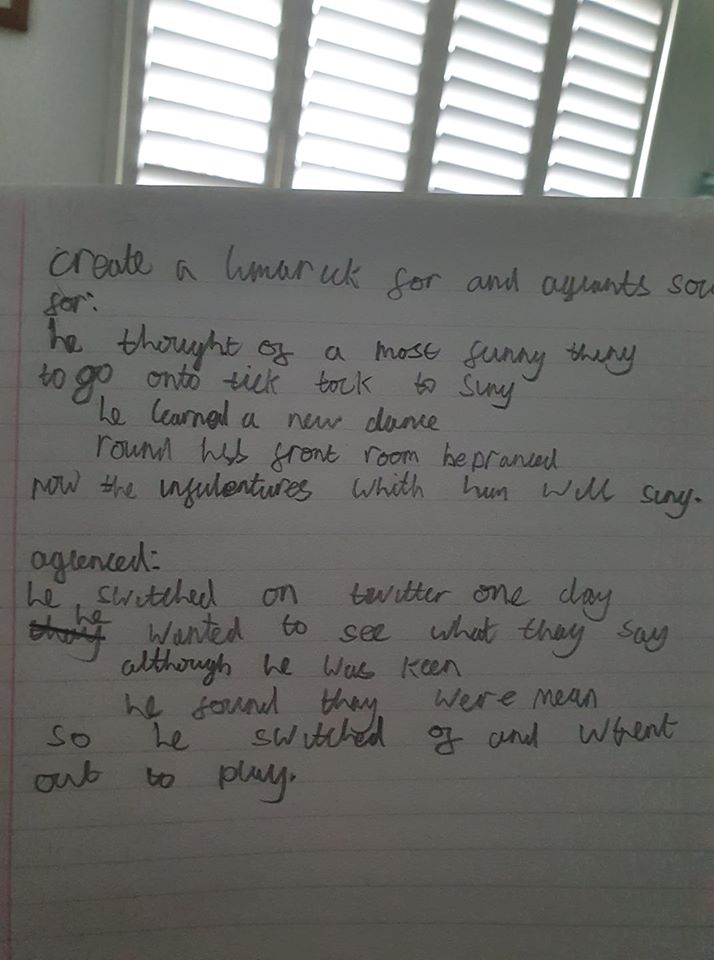 create a limarick for and agiants sou
for:
he thought of a most funny thing
to go onto tick tock to sing
he learned a new dance
round his front room he pranced
now the infulentures whith him will sing.
agienced:
he switched on twitter one day
he wanted to see what they say
although he was keen
he found they were mean
so he switched of and whent
out to play.